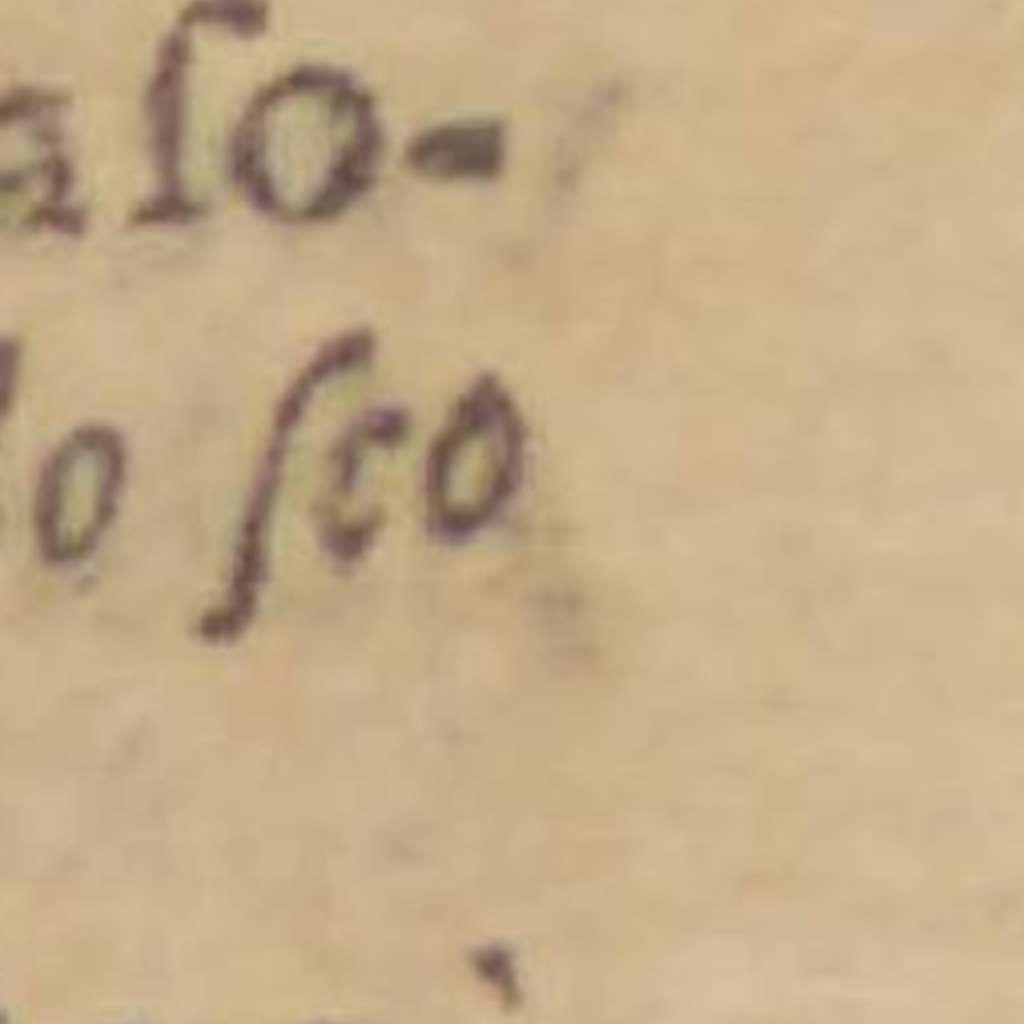 aſo-
o ſco